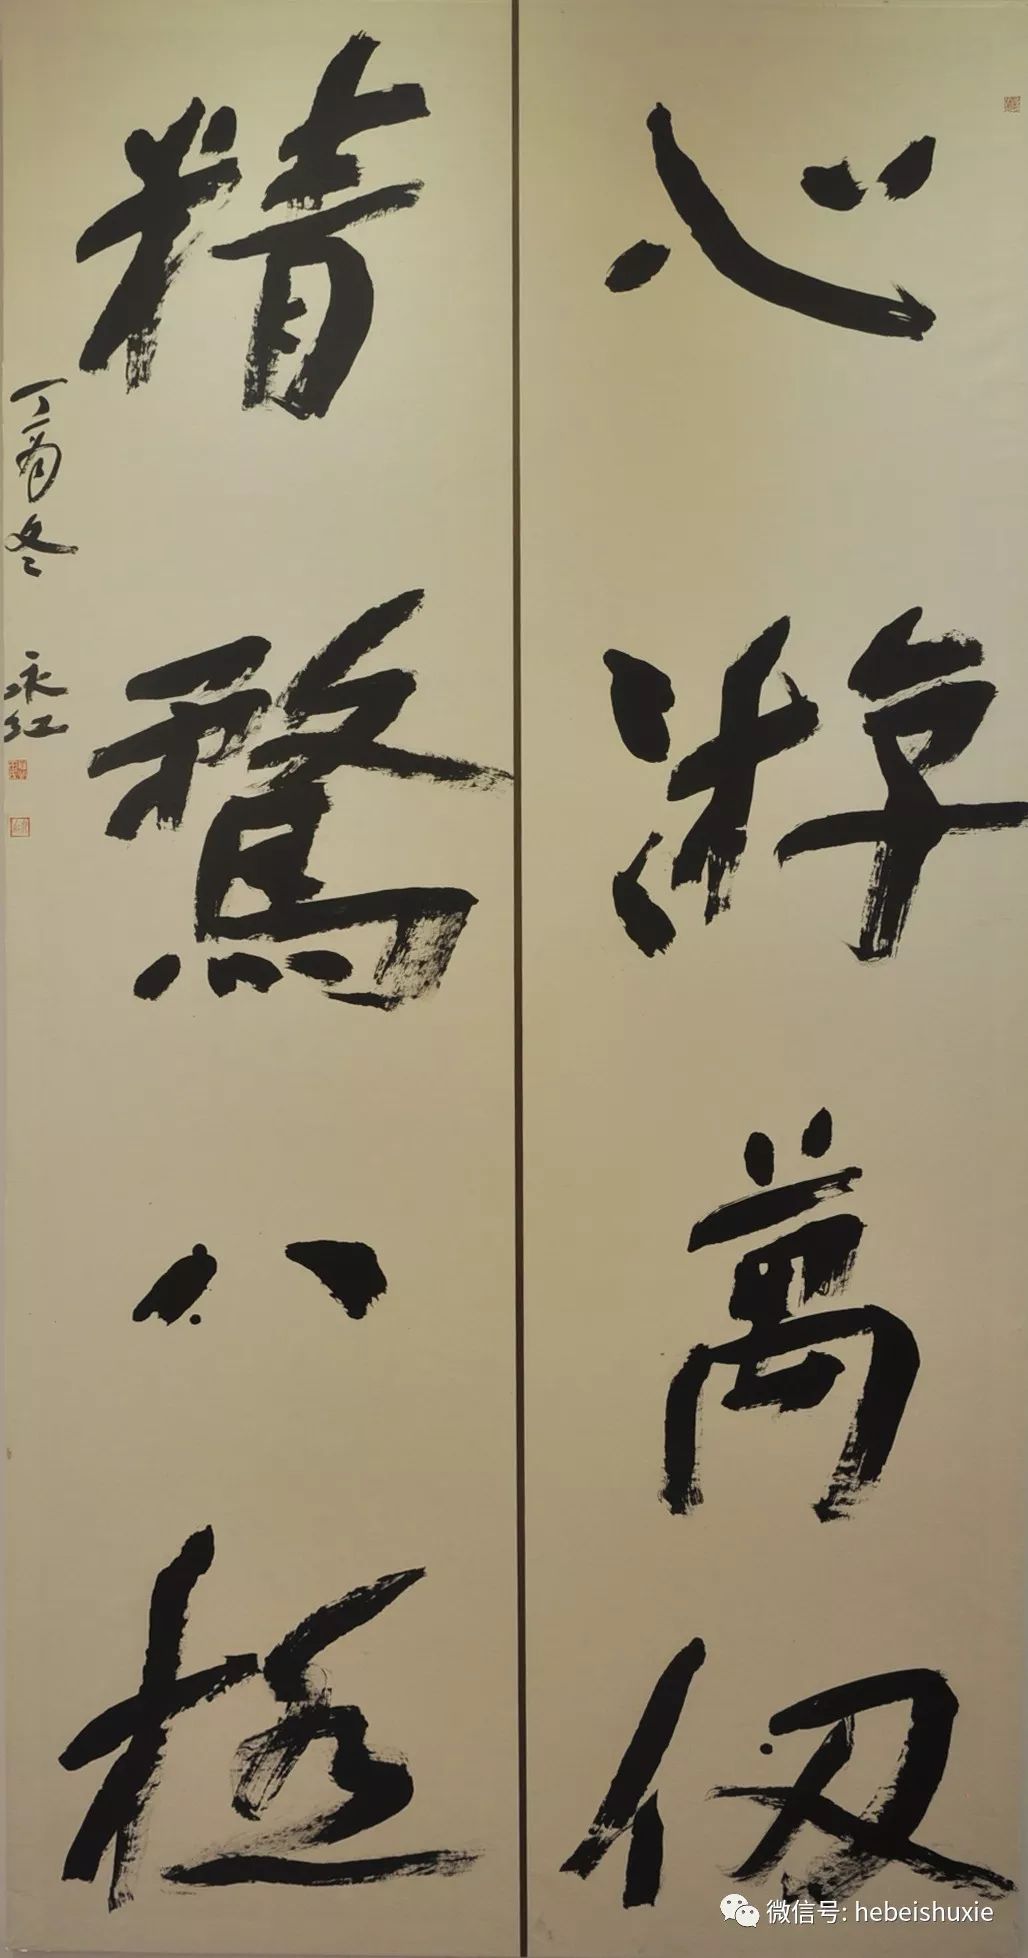 心游萬仞
精騖八極
丁酉冬
永红
微信号: hebeishuxie